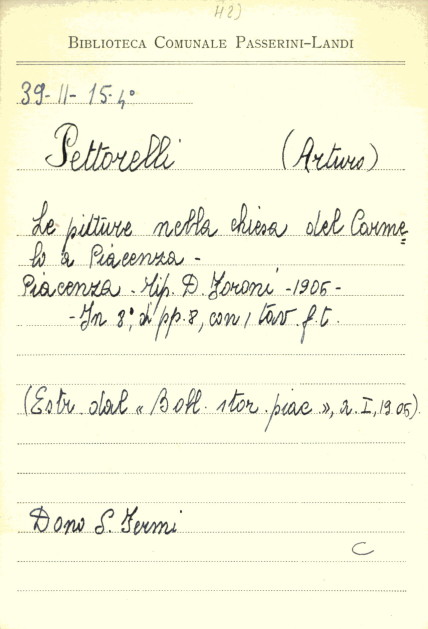 42)
BIBLIOTECA COMUNALE PASSERINI-LANDI
39-II-15-4°
Pettorelli (Arturo)
Le pitture nella chiesa del Carme=
lo a Piacenza -
Piacenza - Tip. D. Foroni - 1906 -
- In 8°, di pp. 8, con 1 tav. f. t.
(Estr. dal « Boll. stor. piac », a. I, 1906).
Dono S. Fermi
C